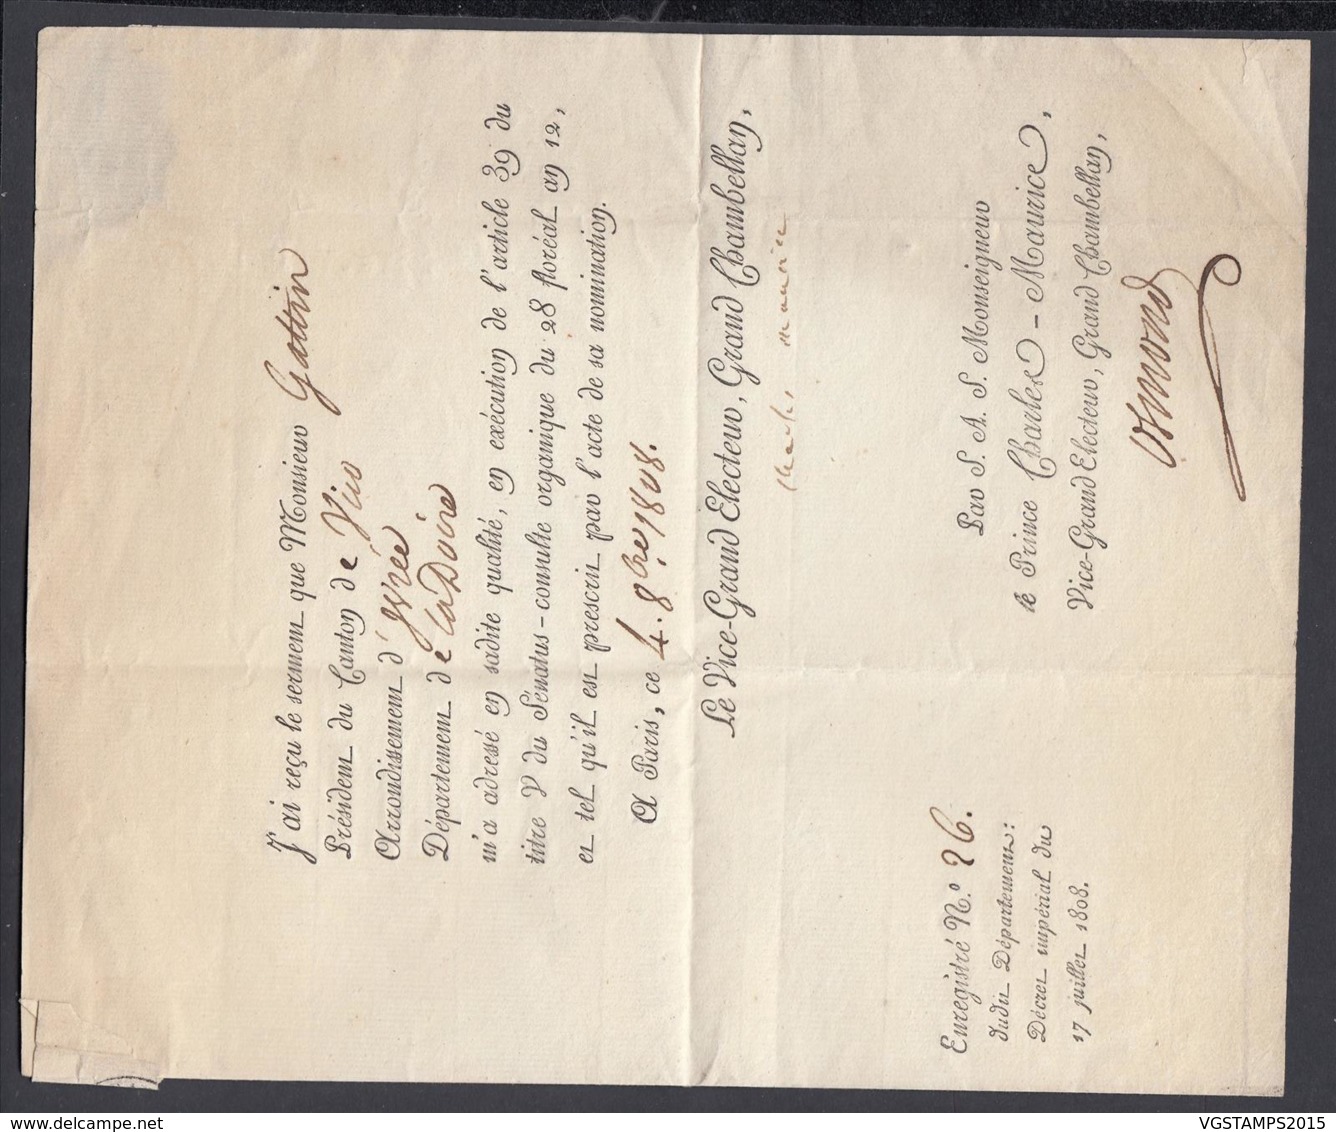 J'ai reçu le serment que Monsieur Gattin
Président du Canton de Vico
Arrondissement d'Yvrée
Département de la Doire
m'a adressé en sadite qualité, en exécution de l'article 39 du
titre V du Sénatus-consulte organique du 28 floréal an 12,
et tel qu'il est prescrit par l'acte de sa nomination.
A Paris, ce 4. 8bre 1808.
Le Vice-Grand Electeur, Grand Chambellan,
charles maurice
Par S. A. S. Monseigneur
le Prince Charles-Maurice,
Vice-Grand Electeur, Grand Chambellan,
Osmond
Enregistré N.o 26.
dudit Département:
Décret impérial du
17 juillet 1808.
www.delcampe.net
VGSTAMPS2015